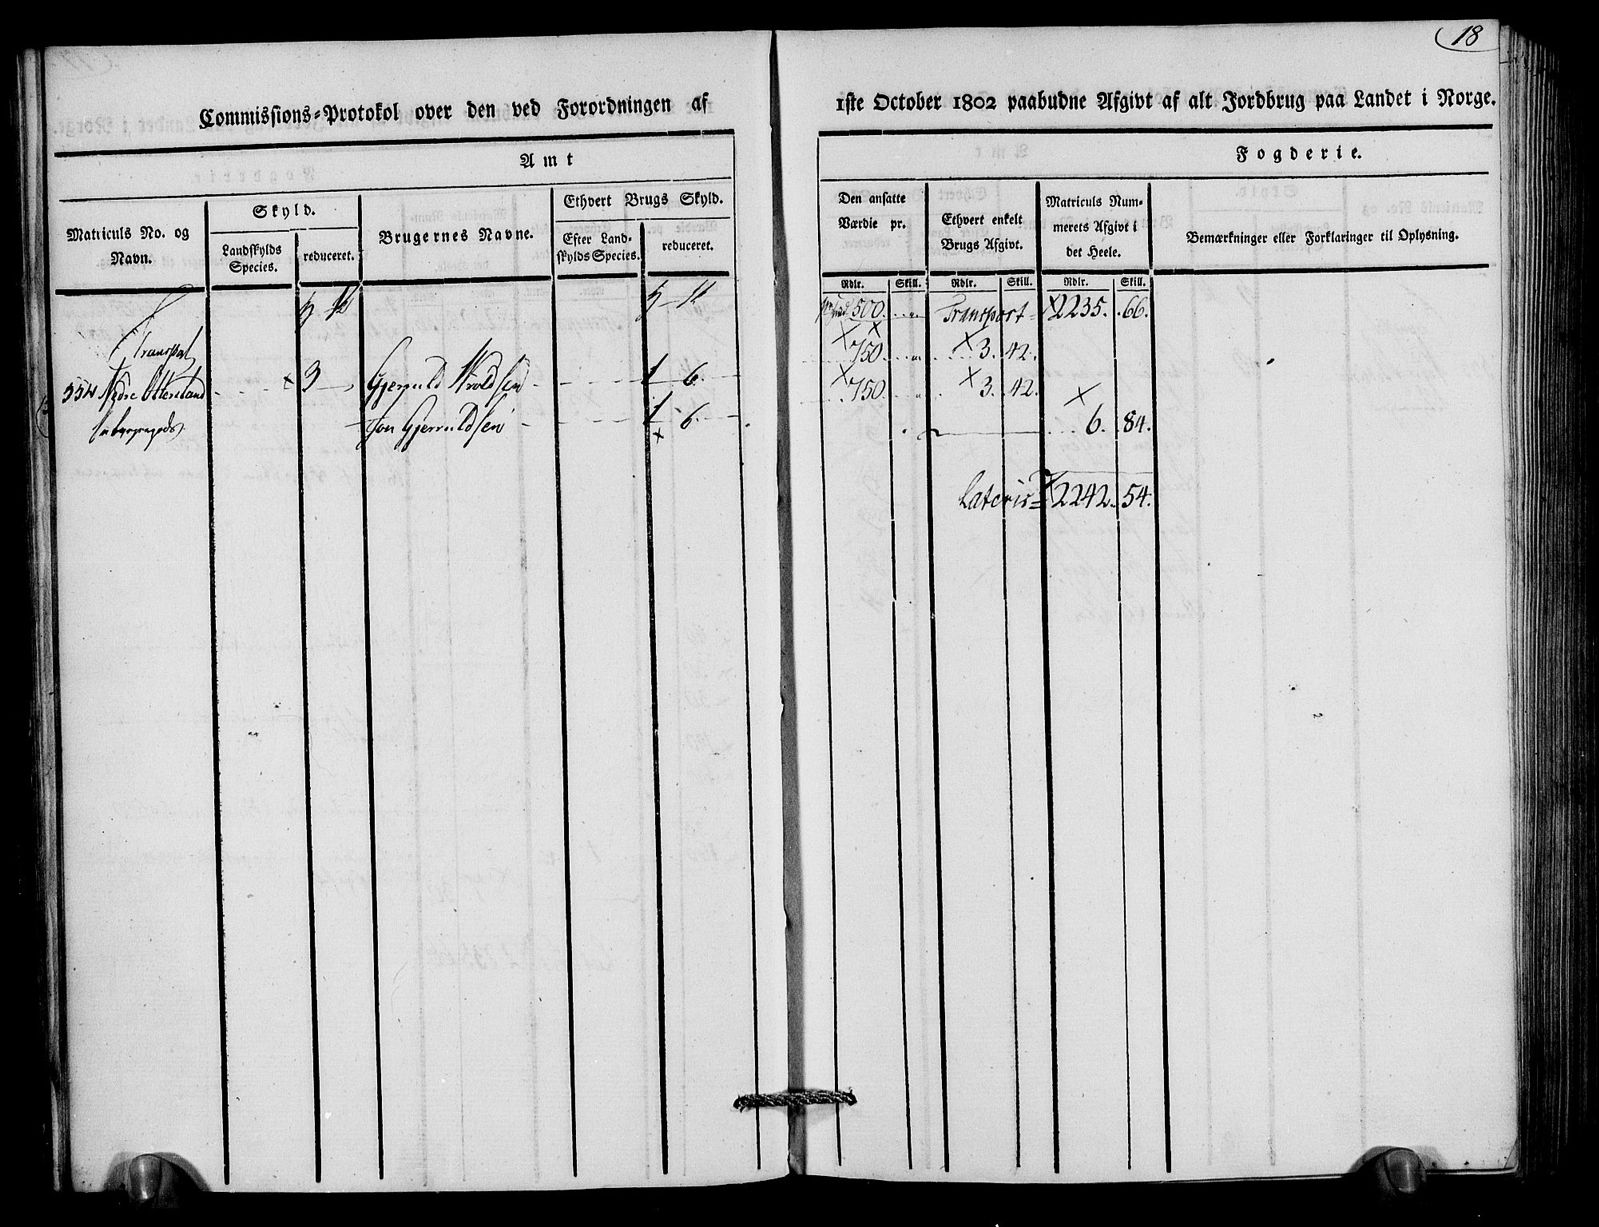 18
Commissions-Protokol over den ved Forordningen af
1ste October 1802 paabudne Afgivt af alt Jordbrug paa Landet i Norge.
Amt
Fogderie.
Matriculs No. og
Navn.
Skyld.
Landskylds
Species.
reduceret.
Brugernes Navne.
Ethvert Brugs Skyld.
Efter Land-
skylds Species.
reduceret.
Den ansatte
Værdie pr.
Ethvert enkelt
Brugs Afgivt.
Matriculs Num-
merets Afgivt i
det Heele.
Bemærkninger eller Forklaringer til Oplysning.
Rdlr. Skill. Rdlr. Skill. Rdlr. Skill.
500. Transport 2235. 66.
Transport
750. 3. 42.
Nedre 3 Gjeruld 1 6.
750. 3. 42.
Jon Gjeruldsen 1 6.
6. 84.
Lateris 2242. 54.